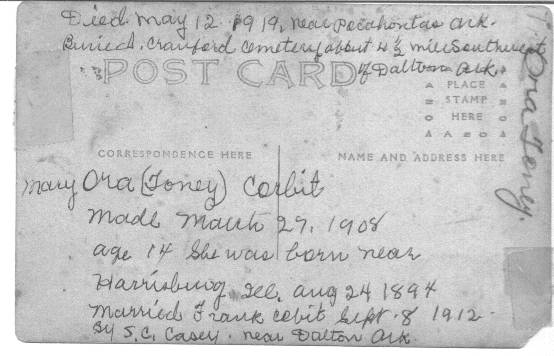 Died May 12 1919, near Pocahontas Ark.
Buried. Cranford Cemetery about 4 1/2 mile Southwest
of Dalton Ark.
POST CARD
PLACE
STAMP
HERE
Ora Toney.
CORRESPONDENCE HERE
NAME AND ADDRESS HERE
Mary Ora (Toney) Corbit
Made March 27, 1908
age 14 She was born near
Harrisburg Ill, Aug 24 1894
Married Frank Cobit Sept. 8 1912.
By S. C. Casey. near Dalton Ark.